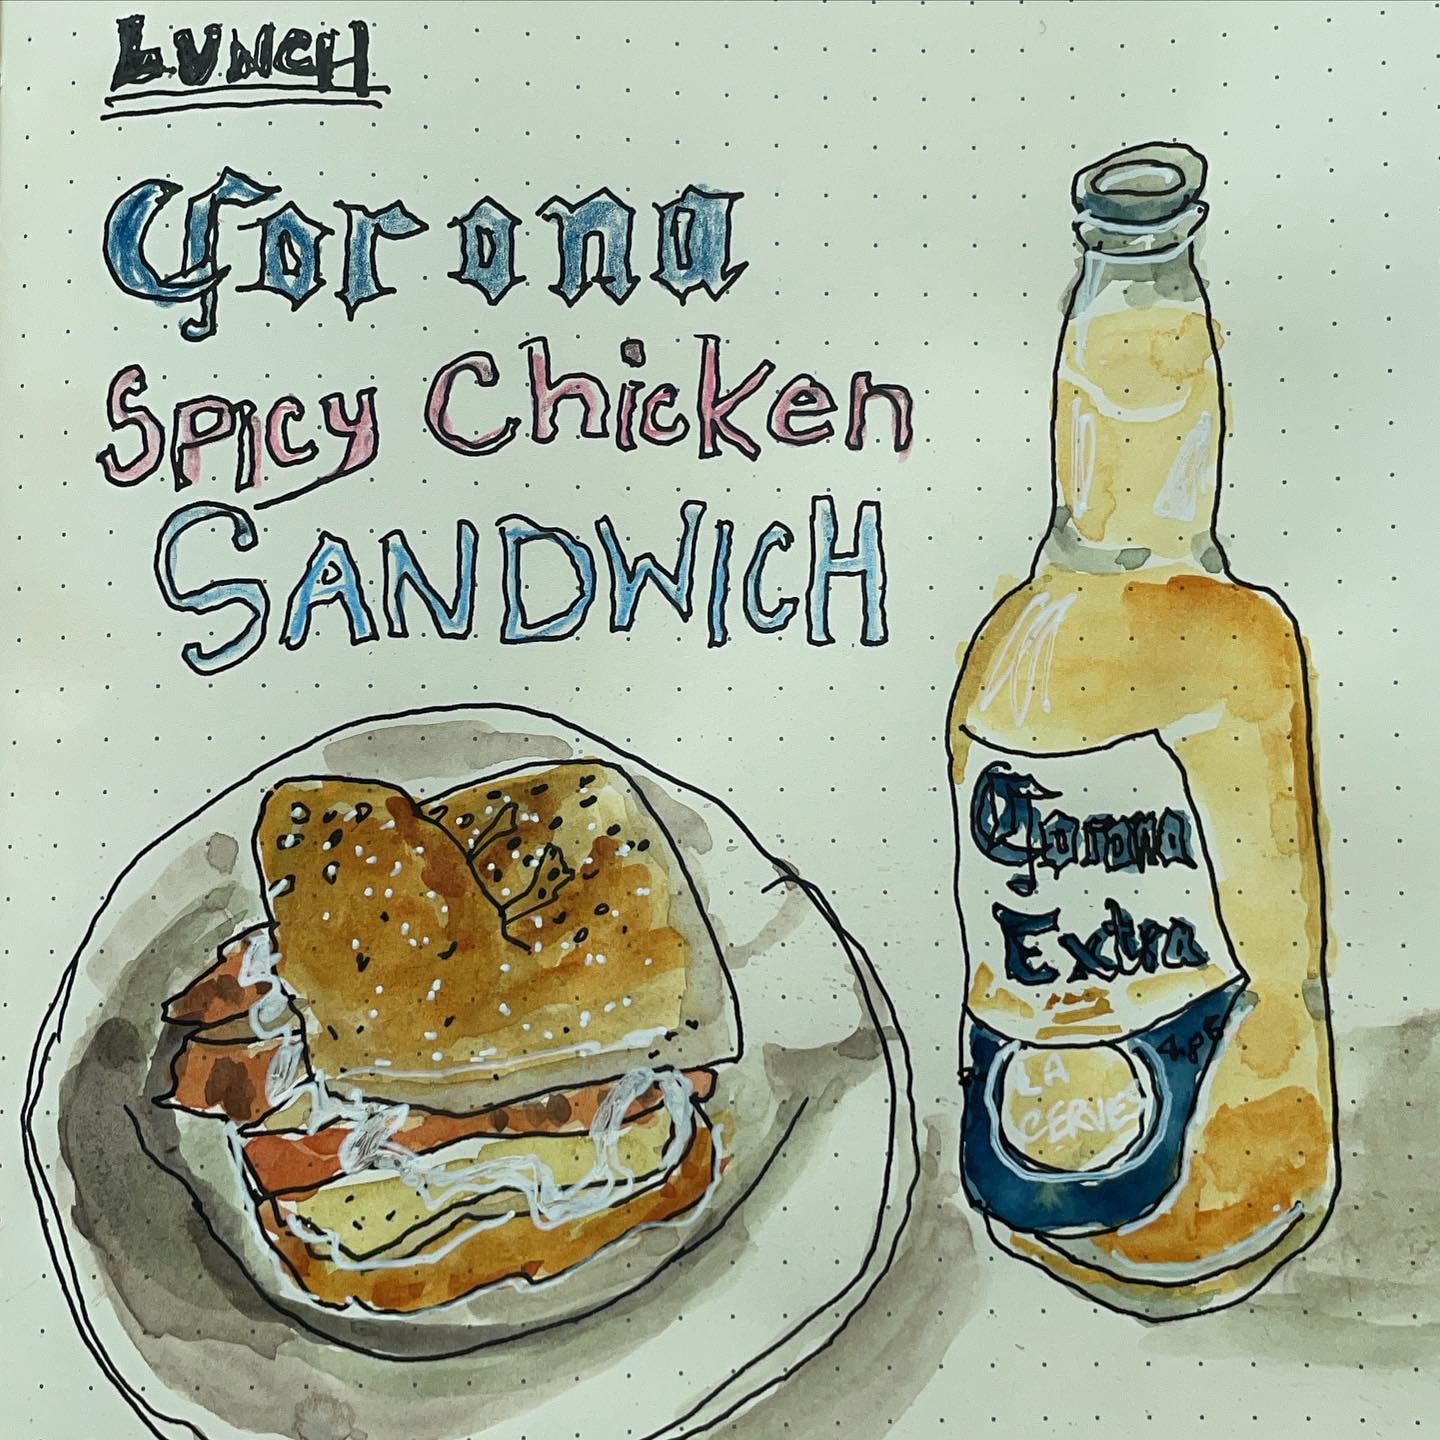 LUNCH
Corona
Spicy Chicken
SANDWICH
Corona
Extra
LA
CERVES